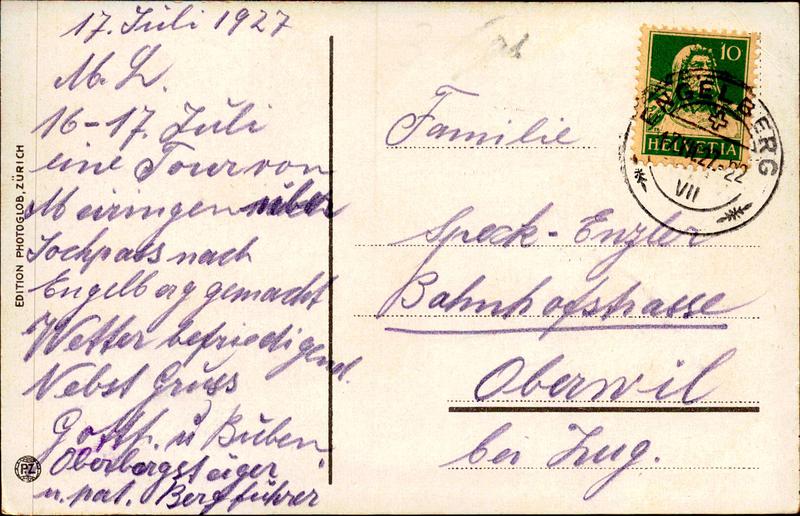 17. Juli 1927
M. L.
16-17. Juli
eine Tour von
Meiringen über
Jochpass nach
Engelberg gemacht
Wetter befriedigend.
Nebst Gruss
Gottf. u Buben
Oberbergsteiger
u. pat. Bergführer
EDITION PHOTOGLOB, ZÜRICH
PZ
10
HELVETIA
ENGELBERG
VII
Familie
Speck-Enzler
Bahnhofstrasse
Oberwil
bei Zug.